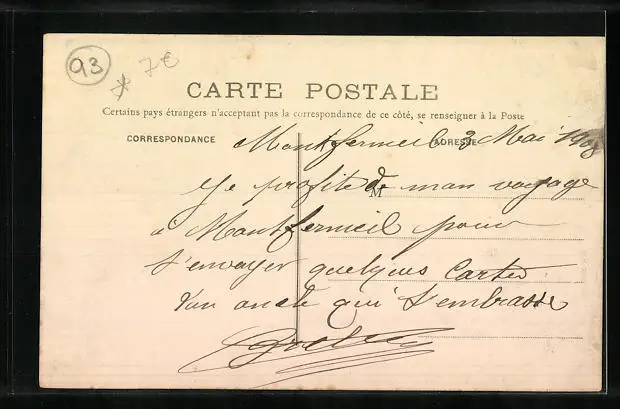 93
7€
CARTE POSTALE
Certains pays étrangers n'acceptant pas la correspondance de ce côté, se renseigner à la Poste
CORRESPONDANCE
ADRESSE
Montfermeil 3 Mai 1908
M
Je profite de mon voyage
à Montfermeil pour
t'envoyer quelques Cartes
Ton oncle qui t'embrasse